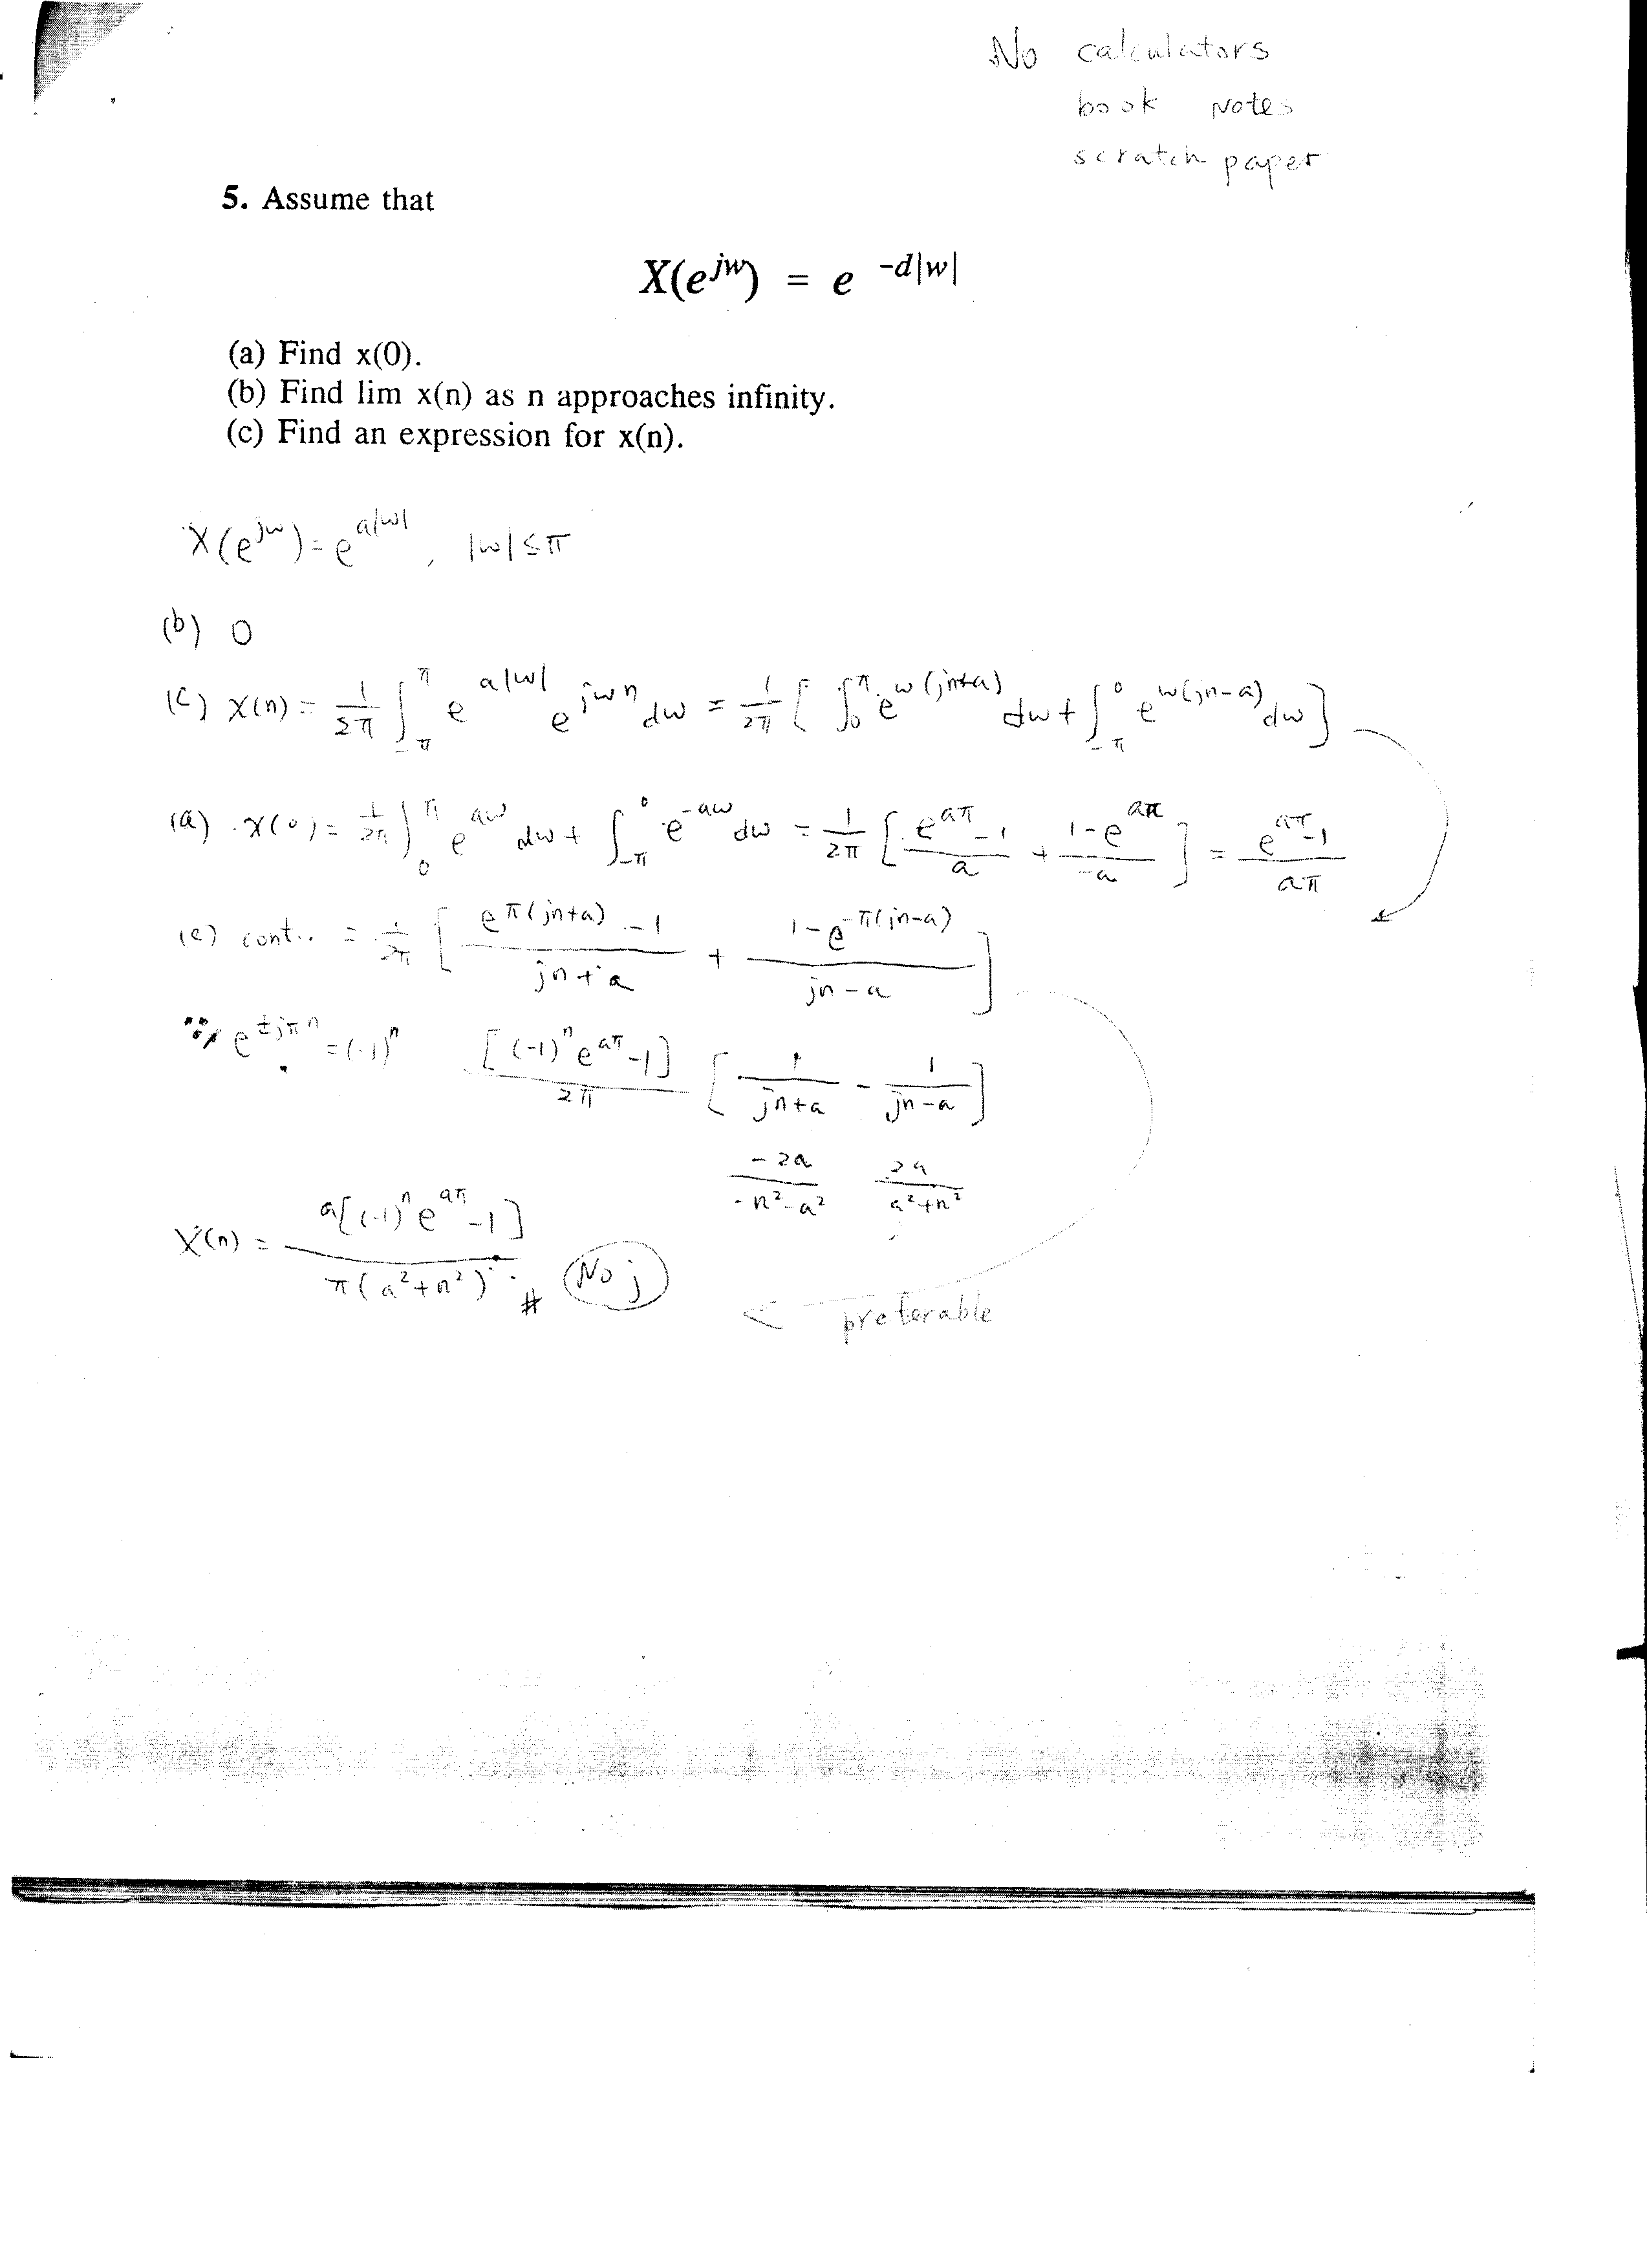 No calculators
book notes
scratch paper
5. Assume that
X(e^{jw}) = e^{-d|w|}
(a) Find x(0).
(b) Find lim x(n) as n approaches infinity.
(c) Find an expression for x(n).
X(e^{jw}) = e^{a|w|}, |w| ≤ π
(b) 0
(c) x(n) = 1/2π ∫_{-π}^{π} e^{a|w|} e^{jwn} dw = 1/2π [ ∫_0^π e^{w(jn+a)} dw + ∫_{-π}^0 e^{w(jn-a)} dw ]
(a) x(0) = 1/2π ∫_0^π e^{aw} dw + ∫_{-π}^0 e^{-aw} dw = 1/2π [ (e^{aπ} - 1)/a + (1 - e^{aπ})/-a ] = (e^{aπ} - 1)/aπ
(c) cont.. = 1/2π [ (e^{π(jn+a)} - 1)/(jn+a) + (1 - e^{-π(jn-a)})/(jn-a) ]
∵ e^{±jπn} = (-1)^n [(-1)^n e^{aπ} - 1]/2π [ 1/(jn+a) - 1/(jn-a) ]
-2a/(-n²-a²) 2a/(a²+n²)
x(n) = a[(-1)^n e^{aπ} - 1]/π(a²+n²) # No j
< preferable